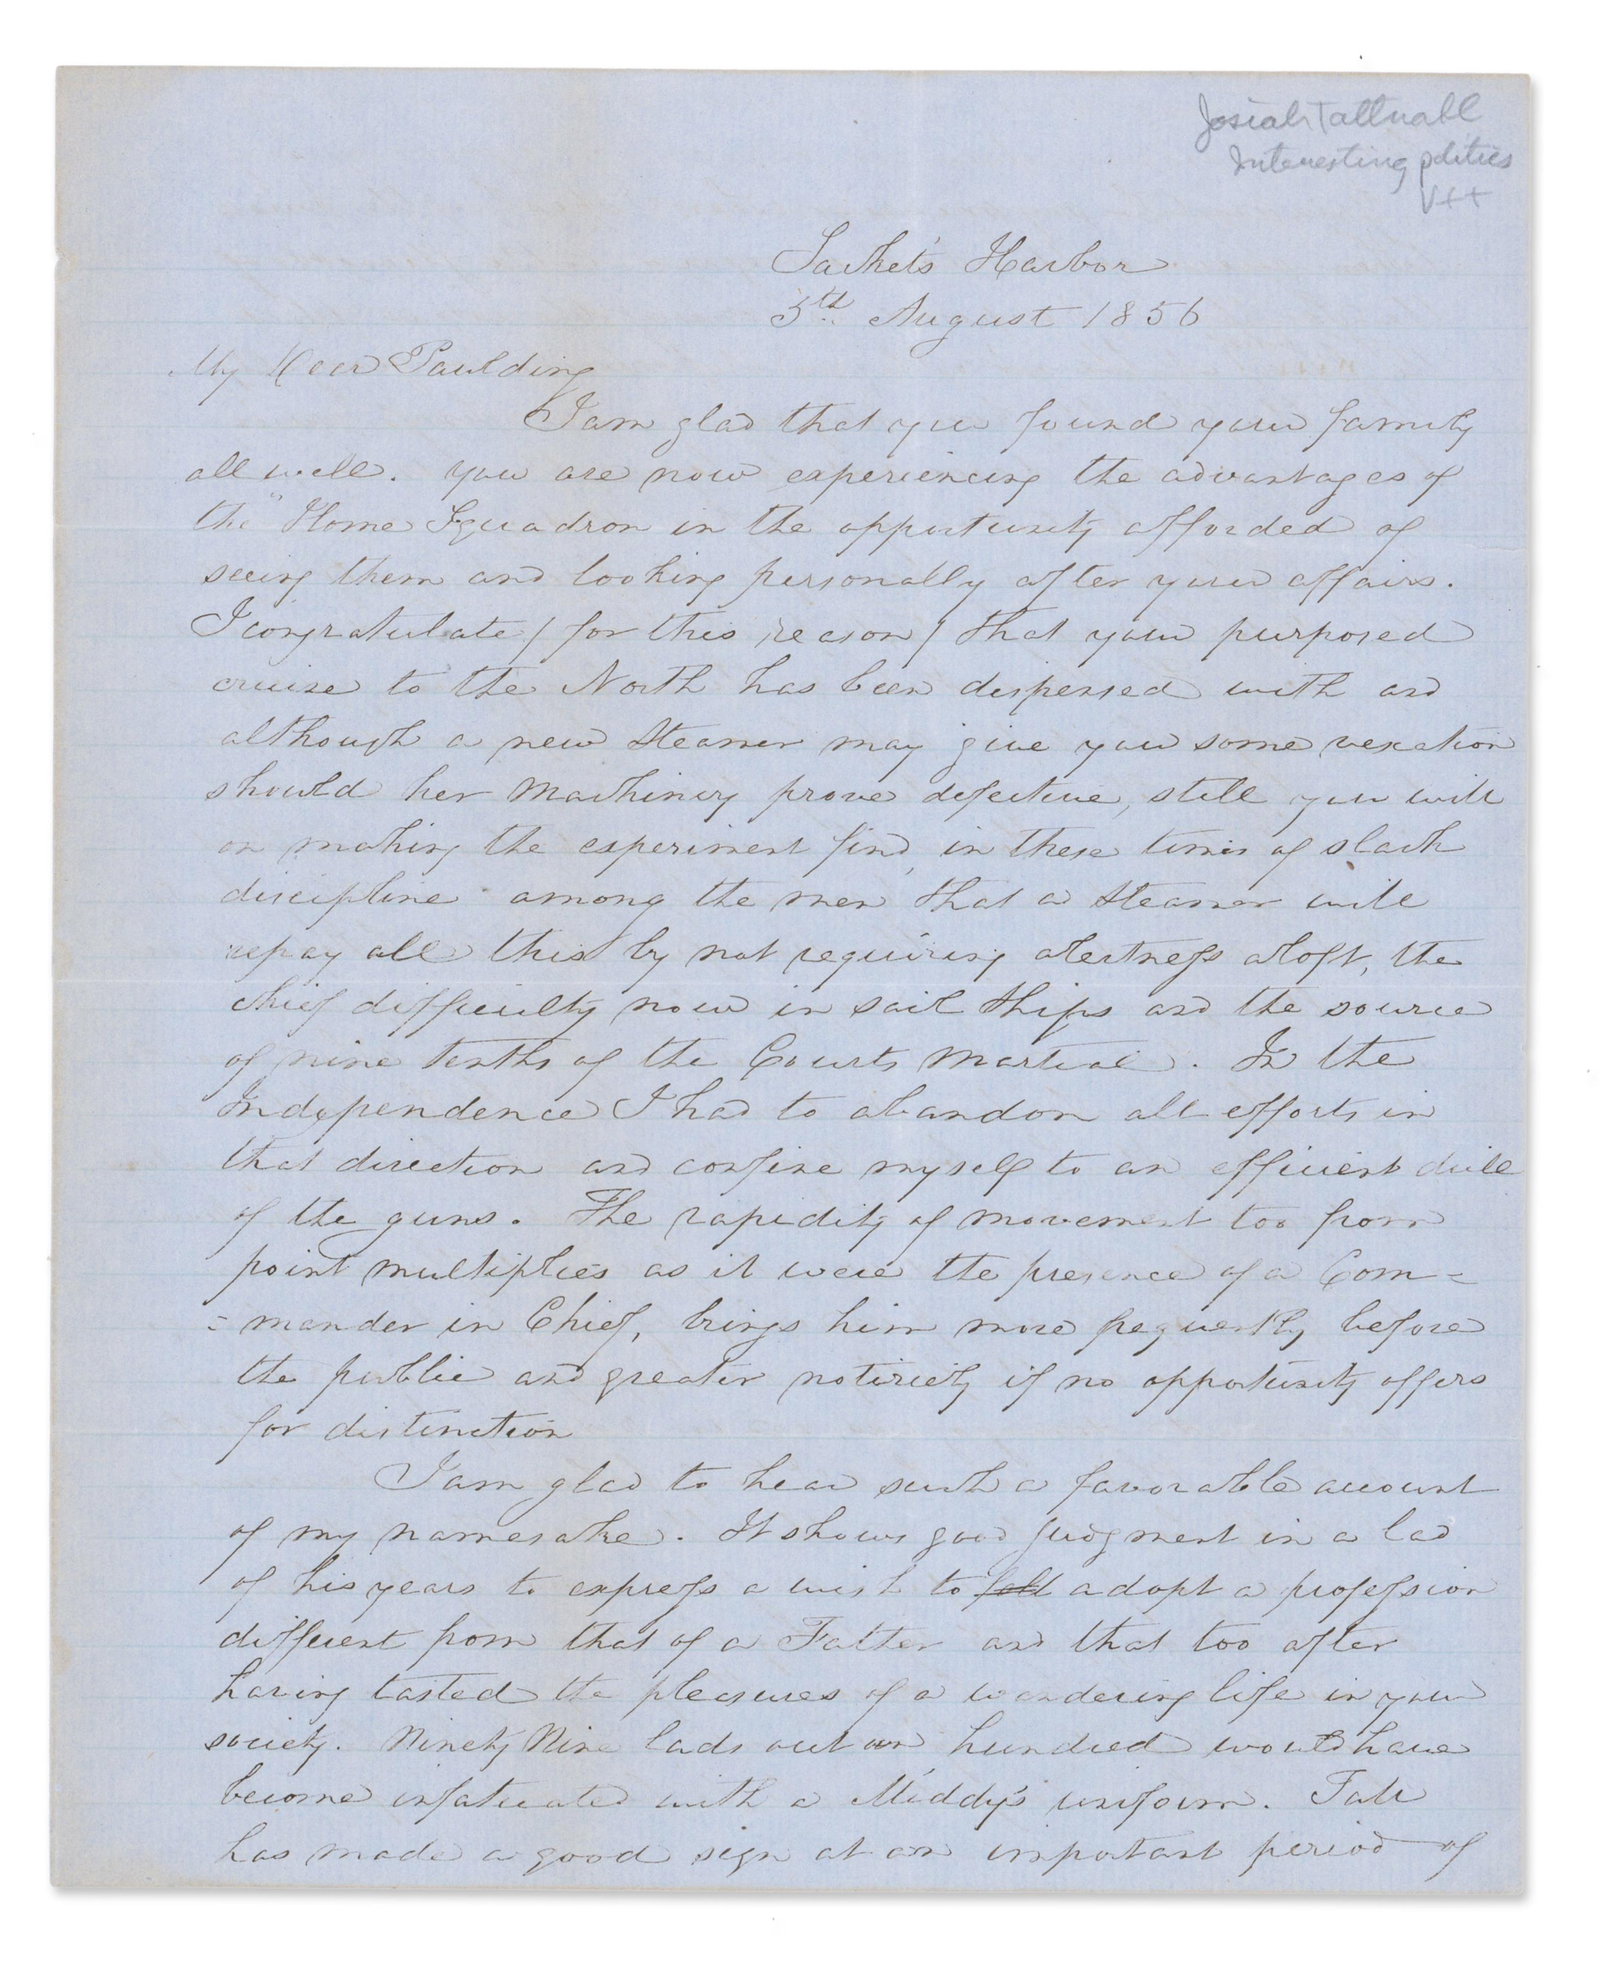 Josiah Tattnall
Interesting politics
V++
Sacket's Harbor
5th August 1856
My Dear Paulding
I am glad that you found your family
all well. You are now experiencing the advantages of
the "Home Squadron in the opportunity afforded of
seeing them and looking personally after your affairs.
I congratulate / for this reason / that your purposed
cruise to the North has been dispensed with and
although a new Steamer may give you some vexation
should her Machinery prove defective, still you will
on making the experiment find, in these times of slack
discipline among the men that a Steamer will
repay all this by not requiring alertness aloft, the
chief difficulty now in sail ships and the source
of nine tenths of the Courts Martial. In the
Independence I had to abandon all efforts in
that direction and confine myself to an efficient drill
of the guns. The rapidity of movement too from
point multiplies as it were the presence of a Com=
=mander in Chief, brings him more frequently before
the public and greater notiriety if no opportunity offers
for distinction
I am glad to hear such a favorable account
of my namesake. It shows good judgment in a lad
of his years to express a wish to adopt a profession
different from that of a Father and that too after
having tasted the pleasures of a wandering life in your
society. Ninety Nine lads out on hundred would have
become infatuated with a Middy's uniform. Tatt
has made a good sign at an important period of